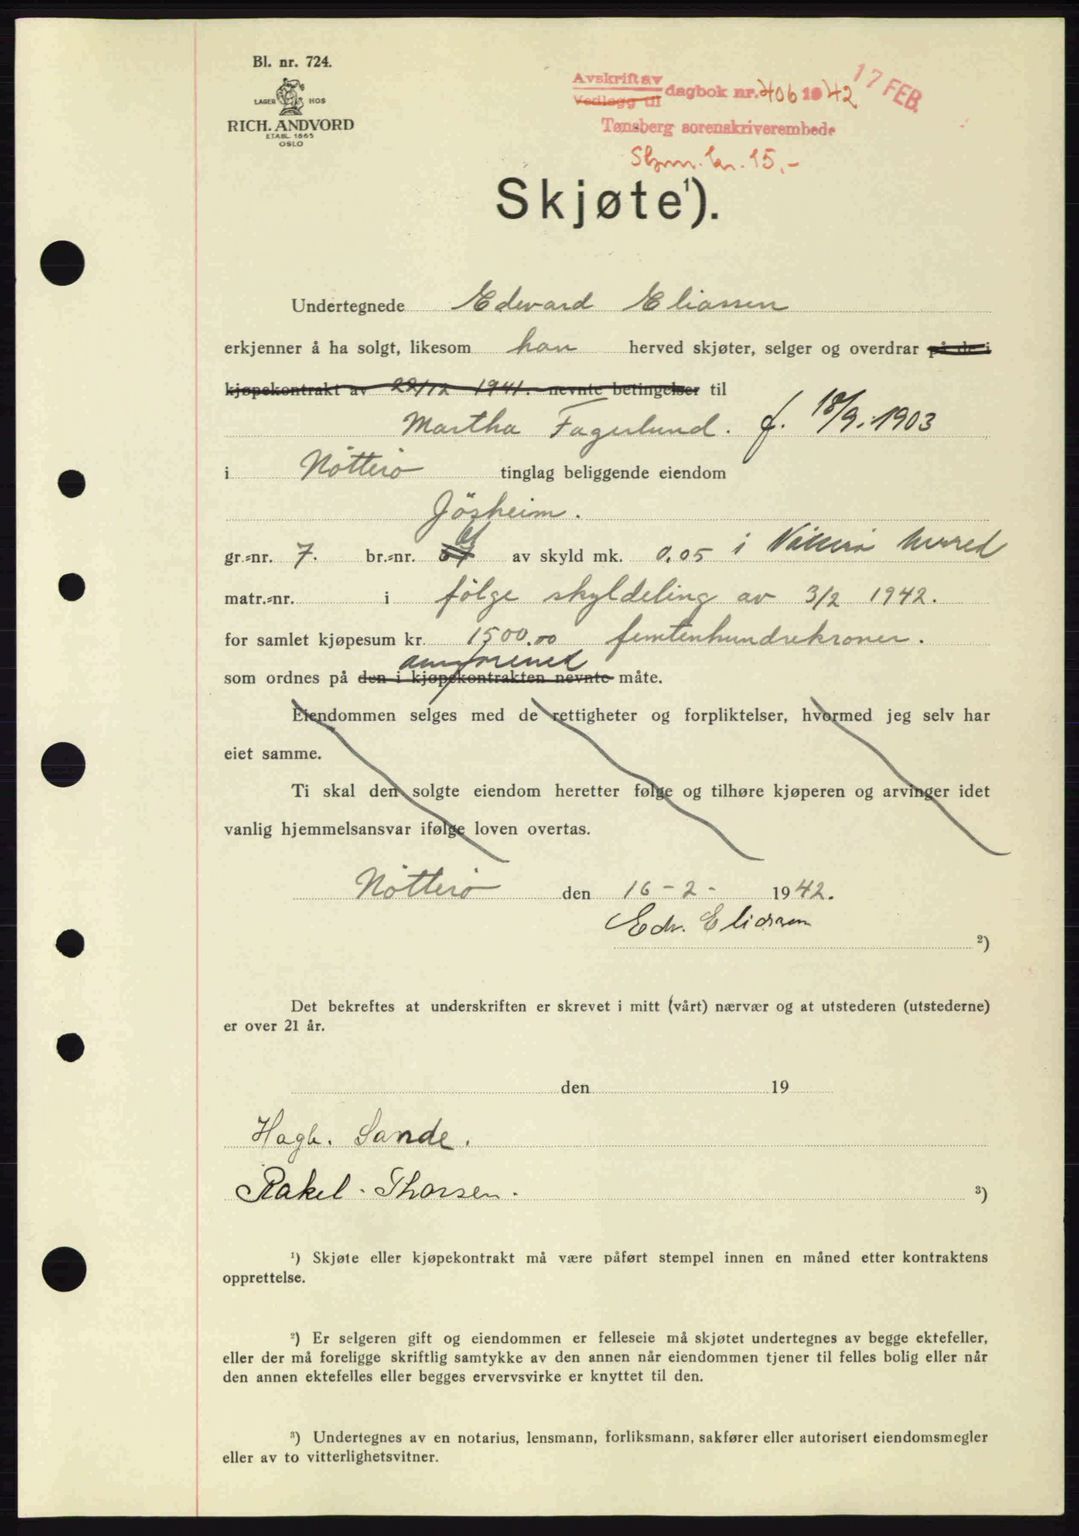 Bl. nr. 724.
LAGER HOS
RICH. ANDVORD
ETABL. 1865
OSLO
Avskrift av
Vedlegg til
dagbok nr. 406 1942
17 FEB.
Tønsberg sorenskriverembede
Stpm. kr. 15.-
Skjøte¹).
Undertegnede Edward Eliassen
erkjenner å ha solgt, likesom han herved skjøter, selger og overdrar på de i
kjøpekontrakt av 22/12 1941. nevnte betingelser til
Martha Fagerlund. f. 18/9.-1903
i Nötterö tinglag beliggende eiendom
Jösheim.
gr.-nr. 7. br.-nr. av skyld mk. 0.05 i Nötterö herred
matr.-nr. i følge skyldeling av 3/2 1942.
for samlet kjøpesum kr. 1500.00 femtenhundrekroner.
som ordnes på den i kjøpekontrakten nevnte måte.
Eiendommen selges med de rettigheter og forpliktelser, hvormed jeg selv har
eiet samme.
Ti skal den solgte eiendom heretter følge og tilhøre kjøperen og arvinger idet
vanlig hjemmelsansvar ifølge loven overtas.
Nötterö den 16-2- 1942.
Edv. Eliassen
²)
Det bekreftes at underskriften er skrevet i mitt (vårt) nærvær og at utstederen (utstederne)
er over 21 år.
den 19
Hagb. Sande.
Rakel Thorsen. ³)
¹) Skjøte eller kjøpekontrakt må være påført stempel innen en måned etter kontraktens
opprettelse.
²) Er selgeren gift og eiendommen er felleseie må skjøtet undertegnes av begge ektefeller,
eller der må foreligge skriftlig samtykke av den annen når eiendommen tjener til felles bolig eller når
den annen ektefelles eller begges ervervsvirke er knyttet til den.
³) Undertegnes av en notarius, lensmann, forliksmann, sakfører eller autorisert eiendomsmegler
eller av to vitterlighetsvitner.